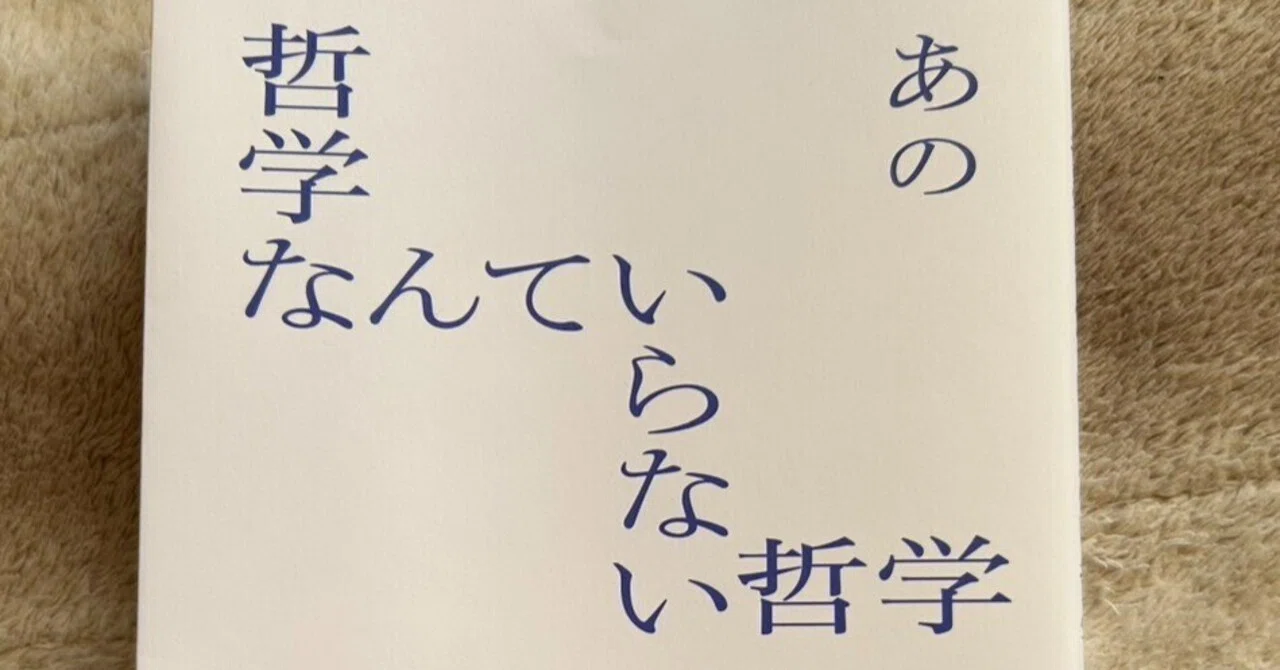 哲学なんていらない哲学
あの